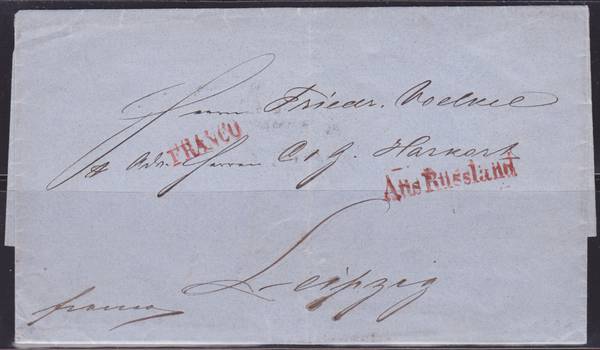 Herrn Friedr. Voelkel
FRANCO
Adr. Herren C. & G. Harkort
Aus Russland
Leipzig
franco